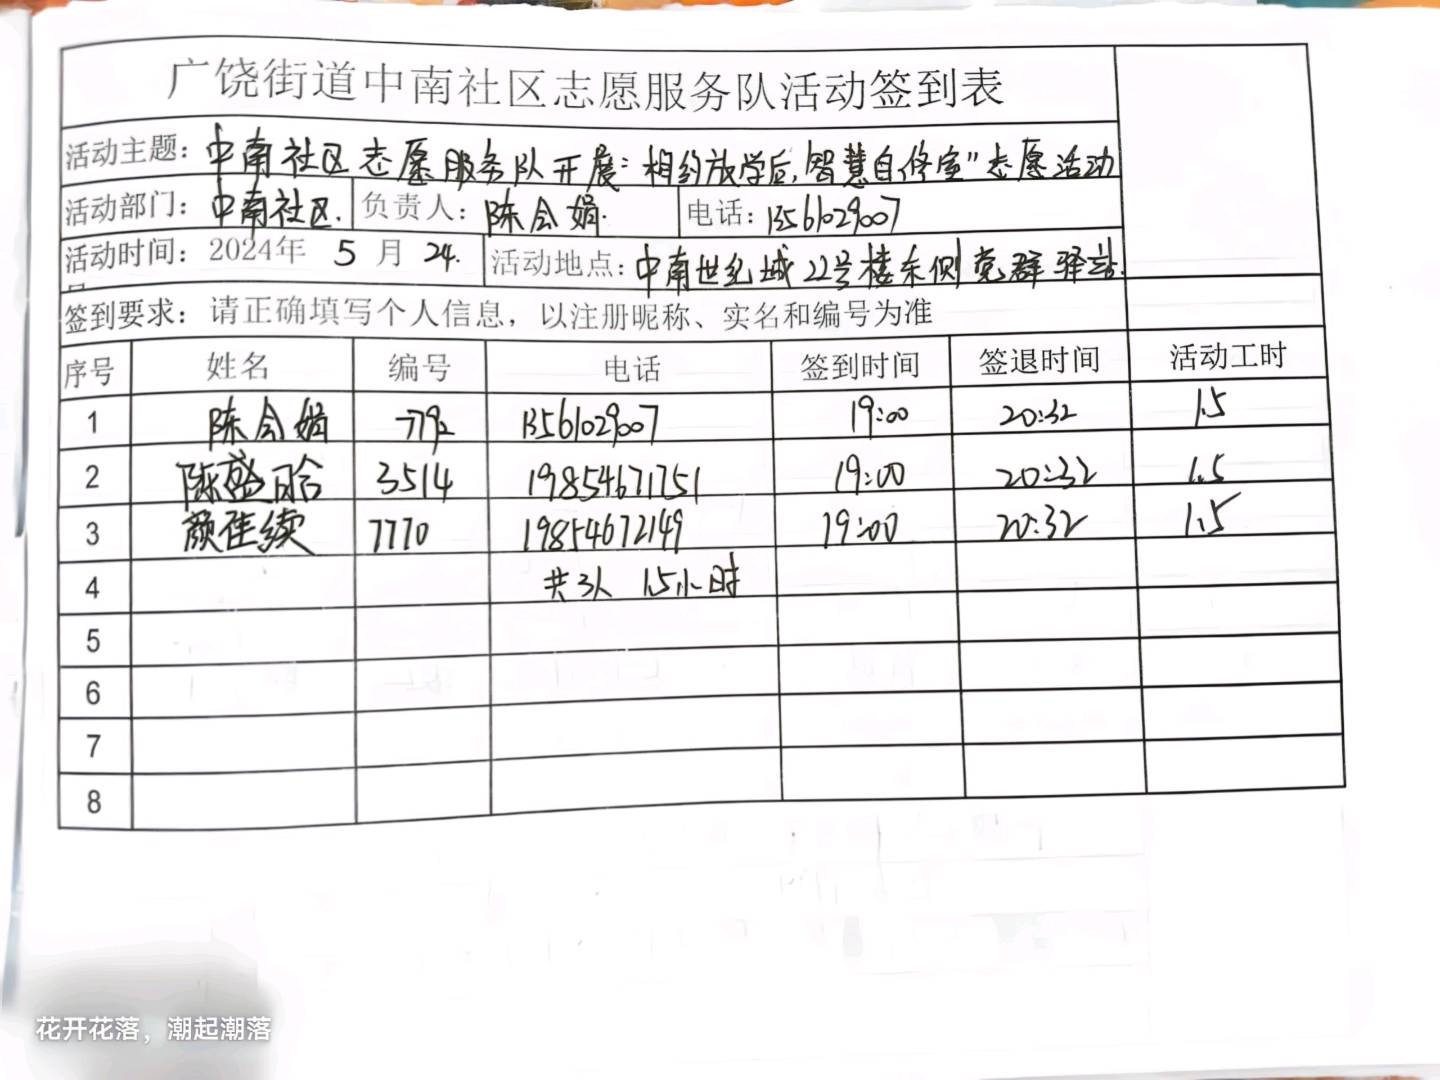 广饶街道中南社区志愿服务队活动签到表
活动主题：中南社区志愿服务队开展：相约放学后，智慧自修室”志愿活动
活动部门：中南社区． 负责人：陈会娟． 电话：13561029007
活动时间：2024年 5 月 24． 活动地点：中南世纪城22号楼东侧党群驿站．
签到要求：请正确填写个人信息，以注册昵称、实名和编号为准
序号 姓名 编号 电话 签到时间 签退时间 活动工时
1 陈会娟 7792 13561029007 19:00 20:32 1.5
2 陈盛晗 3514 19854671751 19:00 20:32 1.5
3 颜佳续 7770 19854672149 19:00 20:32 1.5
4 共3人 1.5小时
5
6
7
8
花开花落，潮起潮落